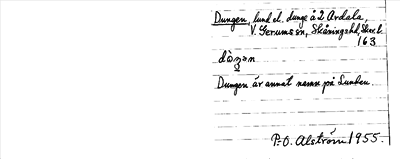 Dungen, lund el. dunge å 2 Ardala,
V. Gerums sn, Skånings hd, Skar. l.
163
dòŋən
Dungen är annat namn på Lunden.
P.-O. Alström 1955.